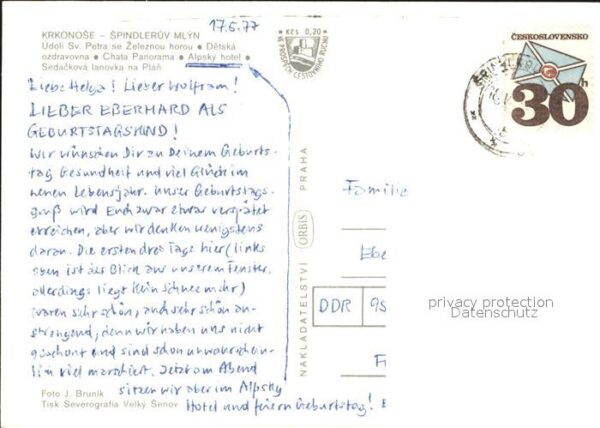 17.5.77
KRKONOŠE – ŠPINDLERŮV MLÝN
Údolí Sv. Petra se Železnou horou • Dětská
ozdravovna • Chata Panorama • Alpský hotel •
Sedačková lanovka na Pláň
Kčs 0,20
VE PROSPĚCH CESTOVNÍHO RUCHU
ČESKOSLOVENSKO
30h
Liebe Helga! Lieber Wolfram!
LIEBER EBERHARD ALS
GEBURTSTAGSKIND!
Wir wünschen Dir zu Deinem Geburts-
tag Gesundheit und viel Glück im
neuen Lebensjahr. Unser Geburtstags-
gruß wird Euch zwar etwas verspätet
erreichen, aber wir denken wenigstens
daran. Die ersten drei Tage hier (links
oben ist der Blick aus unserem Fenster,
allerdings liegt kein Schnee mehr)
waren sehr schön, auch sehr schön an-
strengend, denn wir haben uns nicht
geschont und sind schon unwahrschein-
lich viel marschiert. Jetzt am Abend
sitzen wir aber im Alpsky
Hotel und feiern Geburtstag!
NAKLADATELSTVÍ ORBIS PRAHA
Familie
Ebe
DDR 95
privacy protection
Datenschutz
F
Foto J. Bruník
Tisk Severografia Velký Šenov